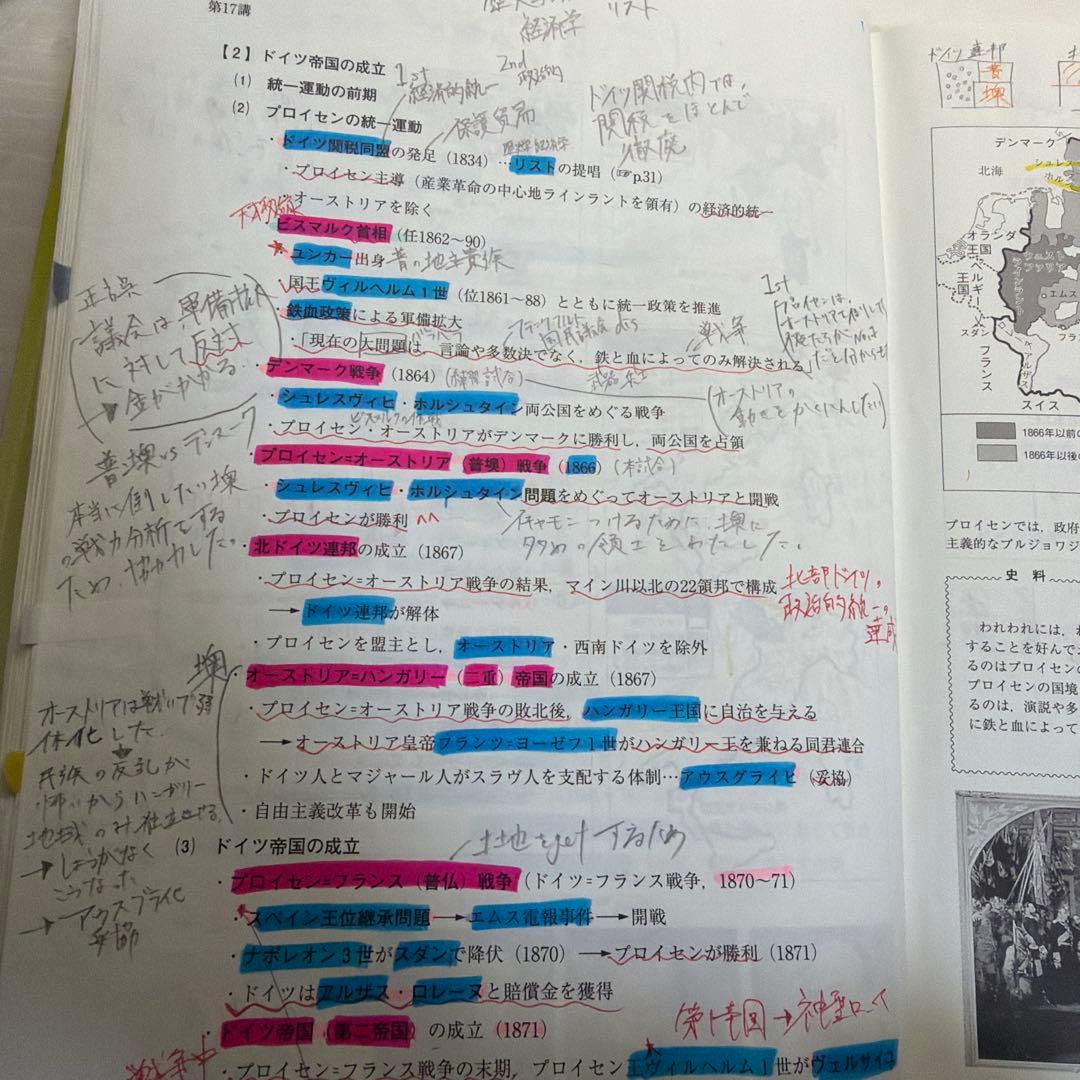 第17講
リスト
経済学
【2】ドイツ帝国の成立
1st
経済的統一
2nd
政治的
(1) 統一運動の前期
(2) プロイセンの統一運動
保護貿易
ドイツ関税内では、
関税をほとんど
撤廃
・ドイツ関税同盟の発足(1834)…リストの提唱(☞p.31)
・プロイセン主導(産業革命の中心地ラインラントを領有)の経済的統一
オーストリアを除く
・ビスマルク首相(任1862〜90)
・ユンカー出身 昔の地主貴族
国王ヴィルヘルム1世(位1861〜88)とともに統一政策を推進
・鉄血政策による軍備拡大
・「現在の大問題は、言論や多数決でなく,鉄と血によってのみ解決される」
戦争
武器 兵士
1st
プロイセンは、
・デンマーク戦争(1864)(練習試合)
(オーストリアの
動きをかくにんしたい)
・シュレスヴィヒ・ホルシュタイン両公国をめぐる戦争
・プロイセン・オーストリアがデンマークに勝利し,両公国を占領
・プロイセン=オーストリア(普墺)戦争(1866)(本試合)
・シュレスヴィヒ・ホルシュタイン問題をめぐってオーストリアと開戦
・プロイセンが勝利
イチャモンつけるために、墺に
多めの領土をわたした。
・北ドイツ連邦の成立(1867)
・プロイセン=オーストリア戦争の結果,マイン川以北の22領邦で構成
北部ドイツ。
政治的統一。
達成
→ドイツ連邦が解体
・プロイセンを盟主とし,オーストリア・西南ドイツを除外
・オーストリア=ハンガリー(二重)帝国の成立(1867)
・プロイセン=オーストリア戦争の敗北後,ハンガリー王国に自治を与える
→オーストリア皇帝フランツ=ヨーゼフ1世がハンガリー王を兼ねる同君連合
・ドイツ人とマジャール人がスラヴ人を支配する体制…アウスグライヒ(妥協)
・自由主義改革も開始
(3) ドイツ帝国の成立
土地をgetするため
・プロイセン=フランス(普仏)戦争(ドイツ=フランス戦争,1870〜71)
・スペイン王位継承問題→エムス電報事件→開戦
・ナポレオン3世がスダンで降伏(1870)→プロイセンが勝利(1871)
・ドイツはアルザス・ロレーヌと賠償金を獲得
第1帝国→神聖ローマ
・ドイツ帝国(第二帝国)の成立(1871)
戦争中
・プロイセン=フランス戦争の末期,プロイセン王ヴィルヘルム1世がヴェルサイユ
正誤
議会は軍備拡大
に対して反対
金がかかる
普墺vsデンマーク
本当に倒したい墺
の戦力分析をする
ため、協力した。
墺
オーストリアは戦いで弱
体化した。
民族の反乱が
怖いからハンガリー
地域のみ独立させる
→しょうがなく
こうなった
→アウスグライヒ
妥協
ドイツ連邦
普
墺
デンマーク
北海
シュレス
ホル
オランダ
王国
ベルギー
王国
ヴェスト
ファーレン
ラインラント
エムス
スダン
フランス
アルザス
スイス
1866年以前の
1866年以後の
プロイセンでは,政府
主義的なブルジョワジ
史 料
われわれには,
することを好んで
るのはプロイセンの
プロイセンの国境
るのは,演説や多
に鉄と血によって